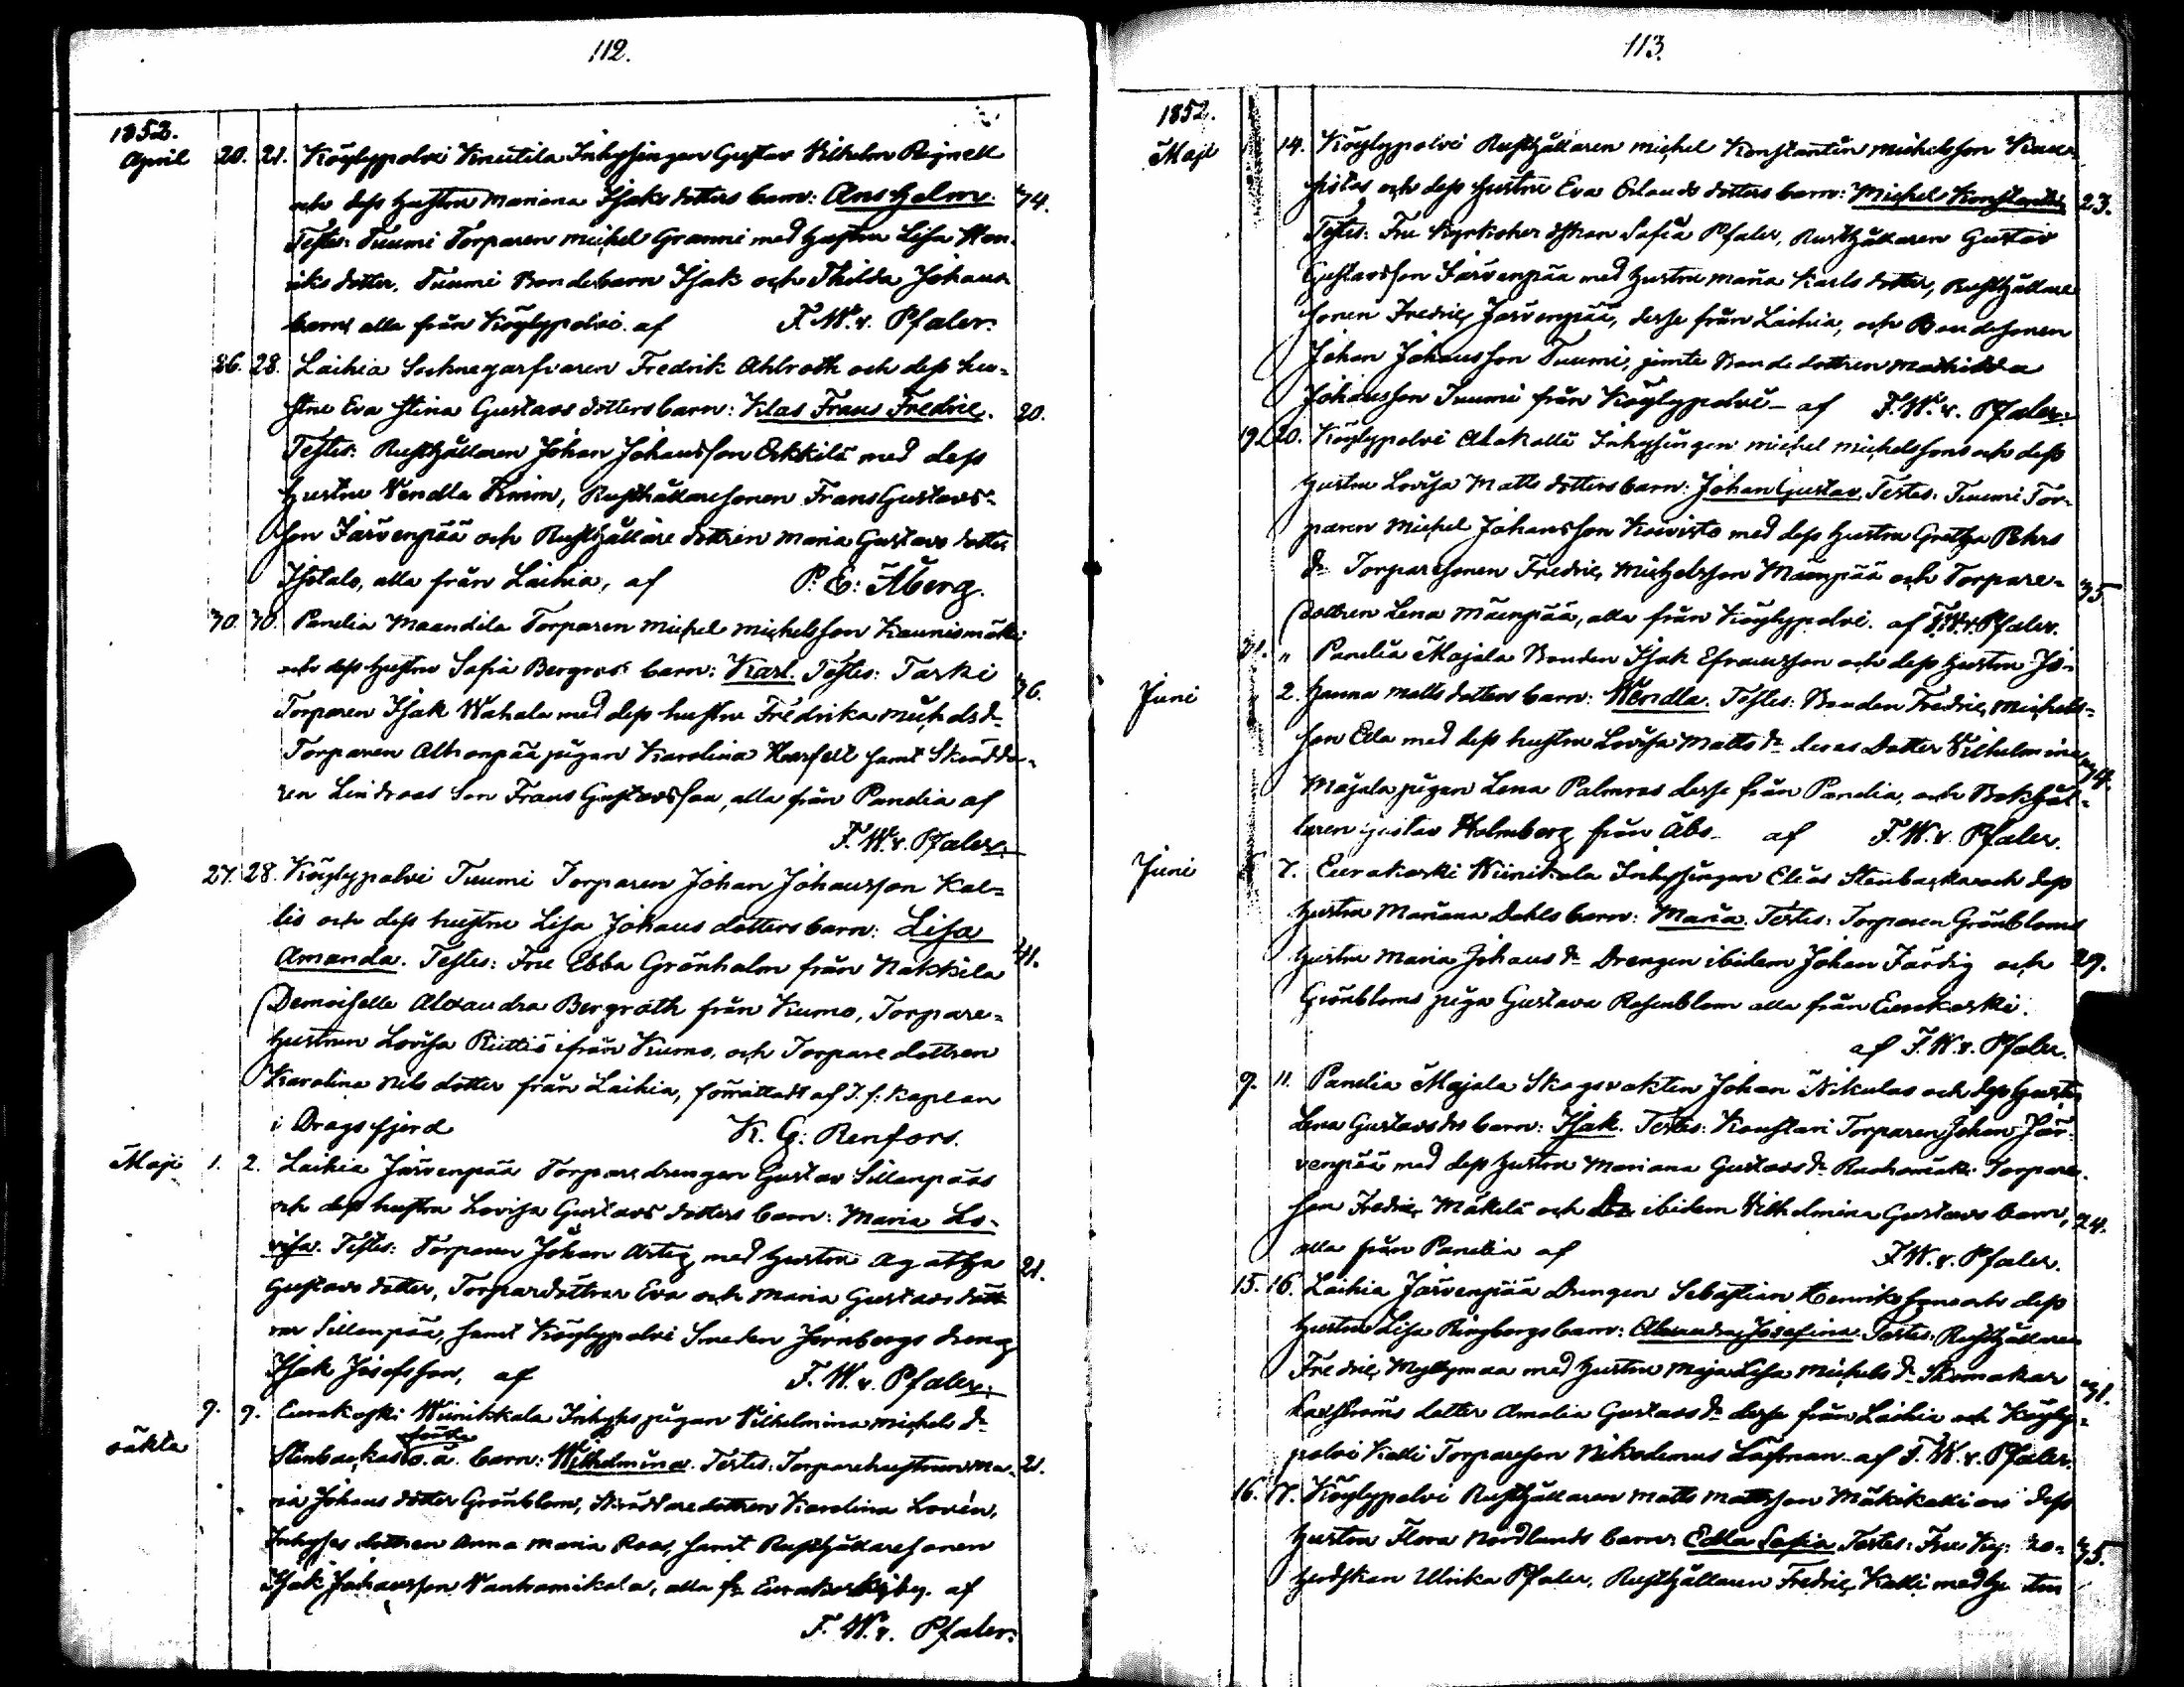 112.
1852.
April 20. 21. Köylypolvi Knutila Inhysingen Gustav Vilhelm Reynell
och dess hustru Mariana Isaks dotters barn: Ans helm. 34.
Testes: Tuumi Torparen Michel Granni med hustru Lisa Hen-
riks dotter, Tuumi Bondebarn Isak och Thilda Johans
barn, alla från Köylypolvi af F. W. v. Pfaler.
26. 28. Laihia Socknegarfvaren Fredrik Ahlroth och dess hu-
stru Eva Stina Gustavs dotters barn: Klas Frans Fredric. 20.
Testes: Rusthållaren Johan Johansson Erkkilä med dess
hustru Vendla Krim, Rusthållaresonen Frans Gustavs-
son Järvenpää och Rusthållare dottren Maria Gustavs dotter
Isotalo, alla från Laihia, af P. E: Åberg.
30. 30. Panelia Maandila Torparen Michel Michelsson Kaunismäki
och dess hustru Safia Bergros' barn: Karl. Testes: Tarki 36.
Torparen Isak Wahala med dess hustru Fredrika Michelsdr
Torparen Alhonpää pigan Karolina samt Skrädda-
ren Lindroos Son Frans Gustavsson, alla från Panelia af
F. W. v. Pfaler.
27. 28. Köylypolvi Tuumi Torparen Johan Johansson Kal-
lio och dess hustru Lisa Johans dotters barn: Lisa
Amanda. Testes: Fru Ebba Grönholm från Nakkila 41.
Demoiselle Alexandra Bergroth från Kumo, Torpare-
hustrun Lovisa ifrån Kumo, och Torpare dottren
Karolina Nils dotter från Laihia, förrättadt af T. f: Kaplan
i Dragsfjerd K. G: Renfors.
Maji 1. 2. Laihia Järvenpää Torparedrengen Gustav Sillanpääs
och dess hustru Lovisa Gustavs dotters barn: Maria Lo-
visa. Testes: Torparen Johan med hustru Agatha 21.
Gustavs dotter, Torpardöttrar Eva och Maria Gustavs dött
rar Sillanpää, samt Köylypolvi Smeden Jernbergs dreng
Isak Josefsson, af F. W. v. Pfaler.
oäkta 9. 9. Eurakoski Wiinikkala Inhyses pigan Vilhelmina Michels dr
Stenbackas o.ä. barn: Wilhelmina. Testes: Torparehustrun Ma- 21.
ria Johans dotter Grönblom, Skräddaredottren Karolina Lovén,
Inhyses dottren Anna Maria Roos, samt Rusthållaresonen
Isak Johansson Vanhamikola, alla fr. Eurakoski by. af
F. W. v. Pfaler.
113.
1852.
Maji 14. Köylypolvi Rusthållaren Michel Konstantin Michelsson
och dess hustru Eva Erlands dotters barn: Michel Konstantin 23.
Testes: Fru Safia Pfaler, Rusthållaren Gustav
Gustavsson Järvenpää med hustru Maria Karls dotter, Rusthållare
sonen Fredric Järvenpää, desse från Laihia, och Bondesonen
Johan Johansson Tuumi, jemte Bonde dottren Mathilda
Johansson Tuumi från Köylypolvi af F. W. v. Pfaler.
19. 20. Köylypolvi Alakalli Inhysingen Michel Michelssons och dess
hustru Lovisa Matts dotters barn: Johan Gustav. Testes: Tuumi Tor-
paren Michel Johansson Koivisto med dess hustru Gretha Pehrs
dr Torparesonen Fredric Michelsson Mäenpää och Torpare- 35
dottren Lena Mäenpää, alla från Köylypolvi. af F. W. v. Pfaler.
31. " Panelia Majala Bonden Isak Efraimsson och dess hustru Jo-
Juni 2. hanna Matts dotters barn: Wendla. Testes: Bonden Fredric Michels-
son Eela med dess hustru Lovisa Matts dr deras Dotter Vilhelmina 34.
Majala pigan Lena Palmroos desse från Panelia, och Bokhål-
laren Gustav Holmberg från Åbo af F. W. v. Pfaler.
Juni 7. Eurakoski Wiinikala Inhysingen Elias Stenbacka och dess
hustru Mariana Dahls barn: Maria. Testes: Torparen Grönbloms
hustru Maria Johans dr Drengen ibidem Johan Färdig och 29.
Grönbloms piga Gustava Rosenblom alla från Eurakoski.
af F. W. v. Pfaler.
9. 11. Panelia Majala Skogsvakten Johan Nikulas och dess hustru
Lena Gustavs drs barn: Isak. Testes: Konstari Torparen Johan Jär-
venpää med dess hustru Mariana Gustavs dr Torpare
son Fredric Mäkelä och ibidem Vilhelmina Gustavs barn, 24.
alla från Panelia af F. W. v. Pfaler.
15. 16. Laihia Järvenpää Drengen Sebastian Henrikssons och dess
hustru Lisa Ringbergs barn: Alexandra Josefina. Testes: Rusthållaren
Fredric Myllymaa med hustru Maja Lisa Michels dr Skomakar 31.
dotter Amalia Gustavs dr desse från Laihia och Köyly-
polvi Kalli Torpareson Nikodemus Löfman. af F. W. v. Pfaler.
16. 17. Köylypolvi Rusthållaren Matts Mattsson Mäkikalli och dess
hustru Flora Nordlunds barn: Edla Safia. Testes: Fru Ky: ko- 35.
herdskan Ulrika Pfaler, Rusthållaren Fredric Kalli med hustru